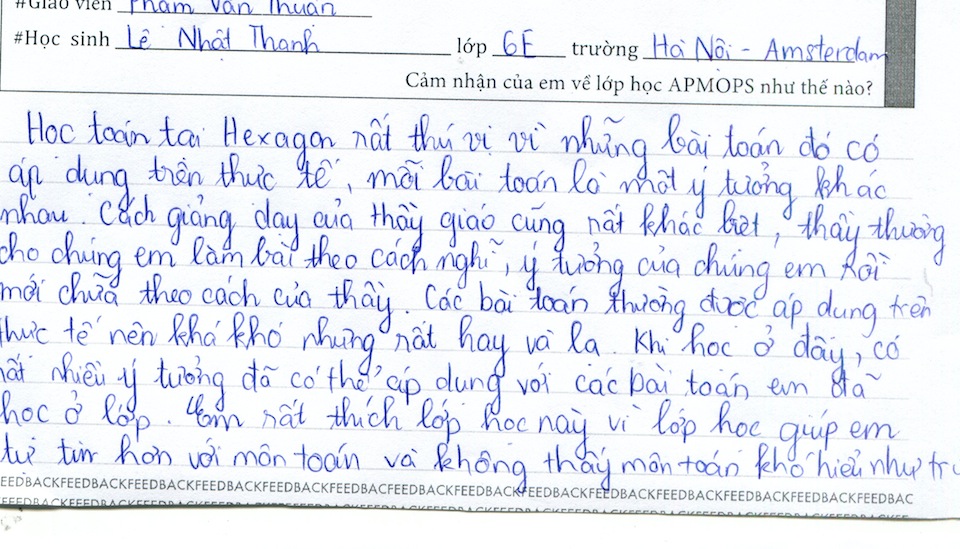 #Giáo viên Phạm Văn Thuận
#Học sinh Lê Nhật Thanh lớp 6E trường Hà Nội - Amsterdam
Cảm nhận của em về lớp học APMOPS như thế nào?
Học toán tại Hexagon rất thú vị vì những bài toán đó có
áp dụng trên thực tế, mỗi bài toán là một ý tưởng khác
nhau. Cách giảng dạy của thầy giáo cũng rất khác biệt, thầy thường
cho chúng em làm bài theo cách nghĩ, ý tưởng của chúng em rồi
mới chữa theo cách của thầy. Các bài toán thường được áp dụng trên
thực tế nên khá khó nhưng rất hay và lạ. Khi học ở đây, có
rất nhiều ý tưởng đã có thể áp dụng với các bài toán em đã
học ở lớp. Em rất thích lớp học này vì lớp học giúp em
tự tin hơn với môn toán và không thấy môn toán khó hiểu như
FEEDBACKFEEDBACKFEEDBACKFEEDBACKFEEDBACFEEDBACKFEEDBACKFEEDBACKFEEDBACKFEEDBACKFEEDBAC